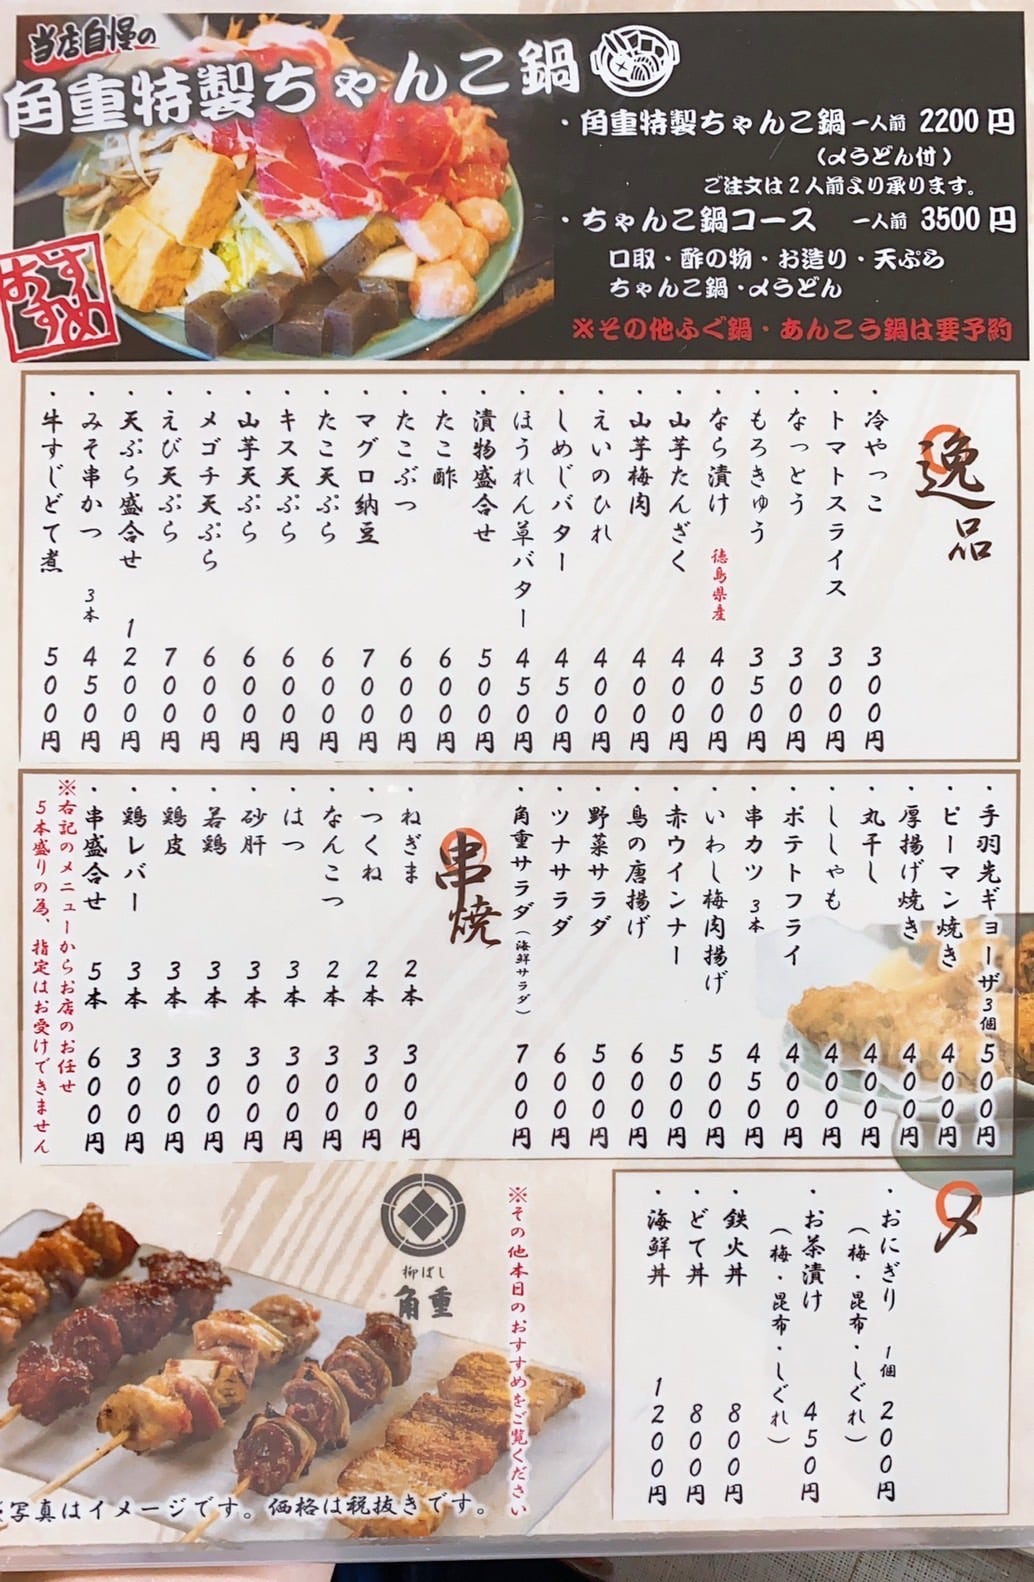 当店自慢の
角重特製ちゃんこ鍋
おすすめ
・角重特製ちゃんこ鍋 一人前 2200円
(〆うどん付)
ご注文は2人前より承ります。
・ちゃんこ鍋コース 一人前 3500円
口取・酢の物・お造り・天ぷら
ちゃんこ鍋・〆うどん
※その他ふぐ鍋・あんこう鍋は要予約
逸品
・冷やっこ 300円
・トマトスライス 300円
・なっとう 300円
・もろきゅう 350円
・なら漬け 徳島県産 400円
・山芋たんざく 400円
・山芋梅肉 400円
・えいのひれ 400円
・しめじバター 450円
・ほうれん草バター 450円
・漬物盛合せ 500円
・たこ酢 600円
・たこぶつ 600円
・マグロ納豆 700円
・たこ天ぷら 600円
・キス天ぷら 600円
・山芋天ぷら 600円
・メゴチ天ぷら 600円
・えび天ぷら 700円
・天ぷら盛合せ 1200円
・みそ串かつ 3本 450円
・牛すじどて煮 500円
・手羽先ギョーザ 3個 500円
・ピーマン焼き 400円
・厚揚げ焼き 400円
・丸干し 400円
・ししゃも 400円
・ポテトフライ 400円
・串カツ 3本 450円
・いわし梅肉揚げ 500円
・赤ウインナー 500円
・鳥の唐揚げ 600円
・野菜サラダ 500円
・ツナサラダ 600円
・角重サラダ(海鮮サラダ) 700円
串焼
・ねぎま 2本 300円
・つくね 2本 300円
・なんこつ 2本 300円
・はつ 3本 300円
・砂肝 3本 300円
・若鶏 3本 300円
・鶏皮 3本 300円
・鶏レバー 3本 300円
・串盛合せ 5本 600円
※右記のメニューからお店のお任せ
5本盛りの為、指定はお受けできません
〆
・おにぎり 1個 200円
(梅・昆布・しぐれ)
・お茶漬け 450円
(梅・昆布・しぐれ)
・鉄火丼 800円
・どて丼 800円
・海鮮丼 1200円
※その他本日のおすすめをご覧ください
柳ばし
角重
※写真はイメージです。価格は税抜きです。